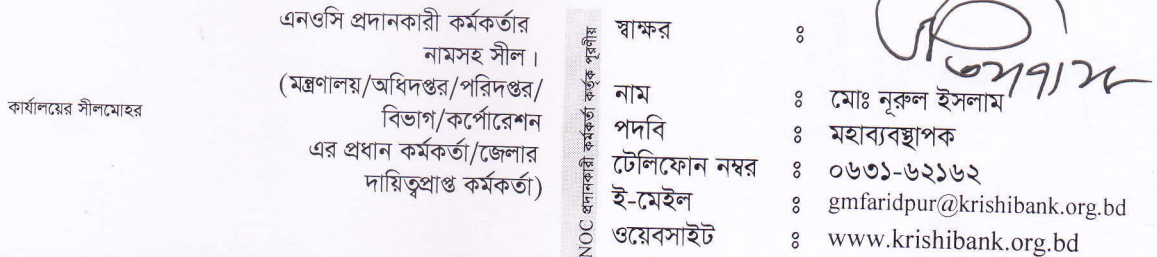 কার্যালয়ের সীলমোহর
এনওসি প্রদানকারী কর্মকর্তার
নামসহ সীল।
(মন্ত্রণালয়/অধিদপ্তর/পরিদপ্তর/
বিভাগ/কর্পোরেশন
এর প্রধান কর্মকর্তা/জেলার
দায়িত্বপ্রাপ্ত কর্মকর্তা)
NOC প্রদানকারী কর্মকর্তা কর্তৃক পূরণীয়
স্বাক্ষর ঃ
নাম ঃ মোঃ নূরুল ইসলাম
পদবি ঃ মহাব্যবস্থাপক
টেলিফোন নম্বর ঃ ০৬৩১-৬২১৬২
ই-মেইল ঃ gmfaridpur@krishibank.org.bd
ওয়েবসাইট ঃ www.krishibank.org.bd